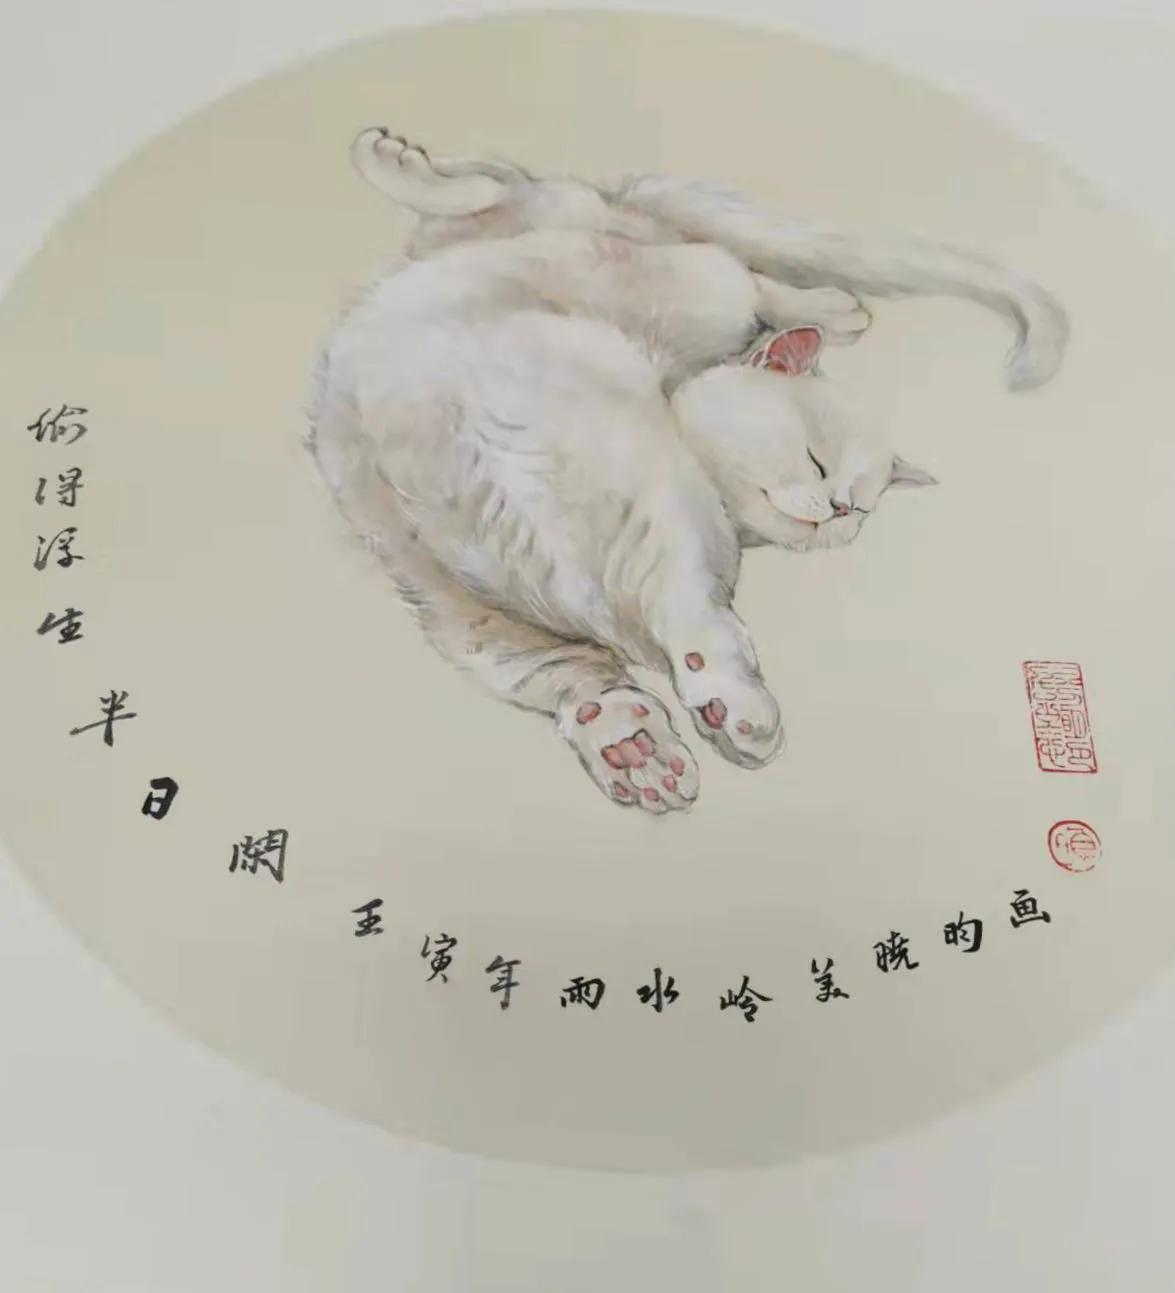 偷得浮生半日闲壬寅年雨水岭美晓昀画